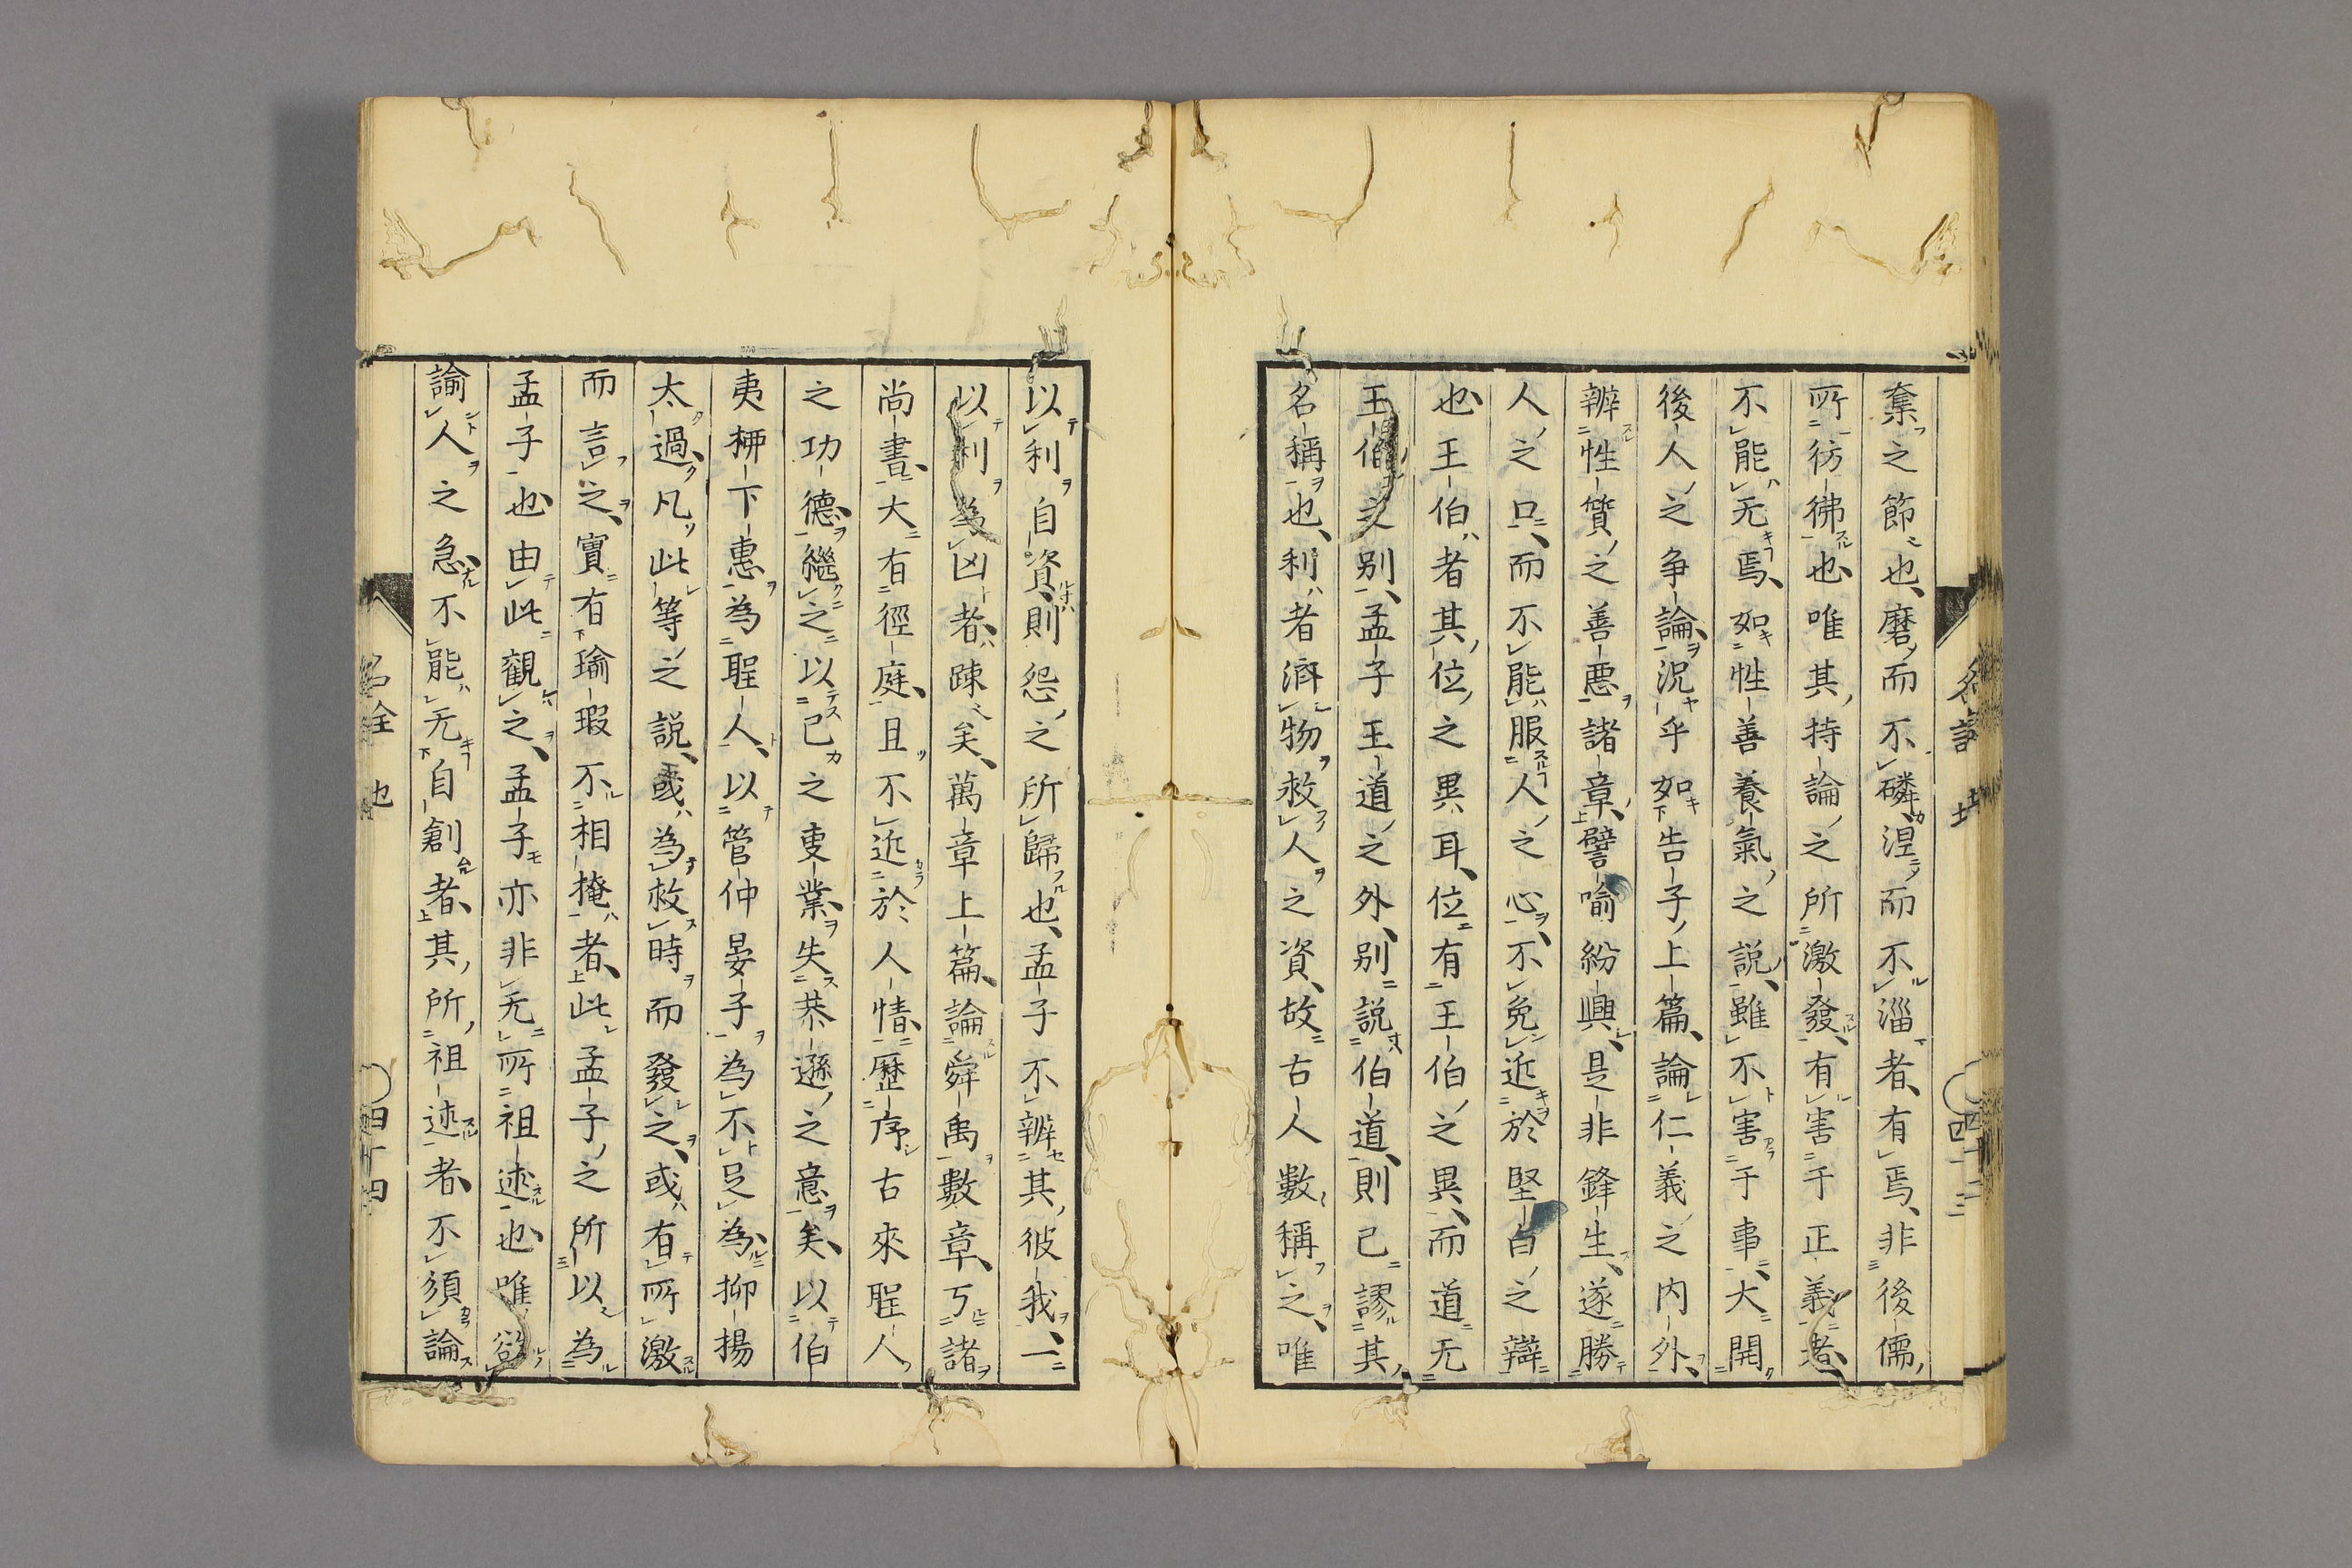 奪之節也磨而不磷涅而不淄者有焉非後儒
所彷彿也唯其持論之所激發有害于正義者
不能无焉如性善養氣之説雖不害于事大開
後人之争論況乎如告子上篇論仁義之内外
辨性質之善悪諸章譬喻紛興是非鋒生遂勝
人之口而不能服人之心不免近於堅白之辯
也王伯者其位之異耳位有王伯之異而道无
王伯之別孟子王道之外別説伯道則已謬其
名稱也利者濟物救人之資故古人數稱之唯
以利自資則怨之所歸也孟子不辨其彼我一
以利為凶者踈矣萬章上篇論舜禹數章丂諸
尚書大有徑庭且不近於人情歷序古來聖人
之功德繼之以己之叓業失恭遜之意矣以伯
夷栁下惠為聖人以管仲晏子為不足為抑揚
太過凡此等之説或為救時而發之或有所激
而言之實有瑜瑕不相掩者此孟子之所以為
孟子也由此觀之孟子亦非无所祖述也唯欲
諭人之急不能无自創者其所祖述者不須論
四十四